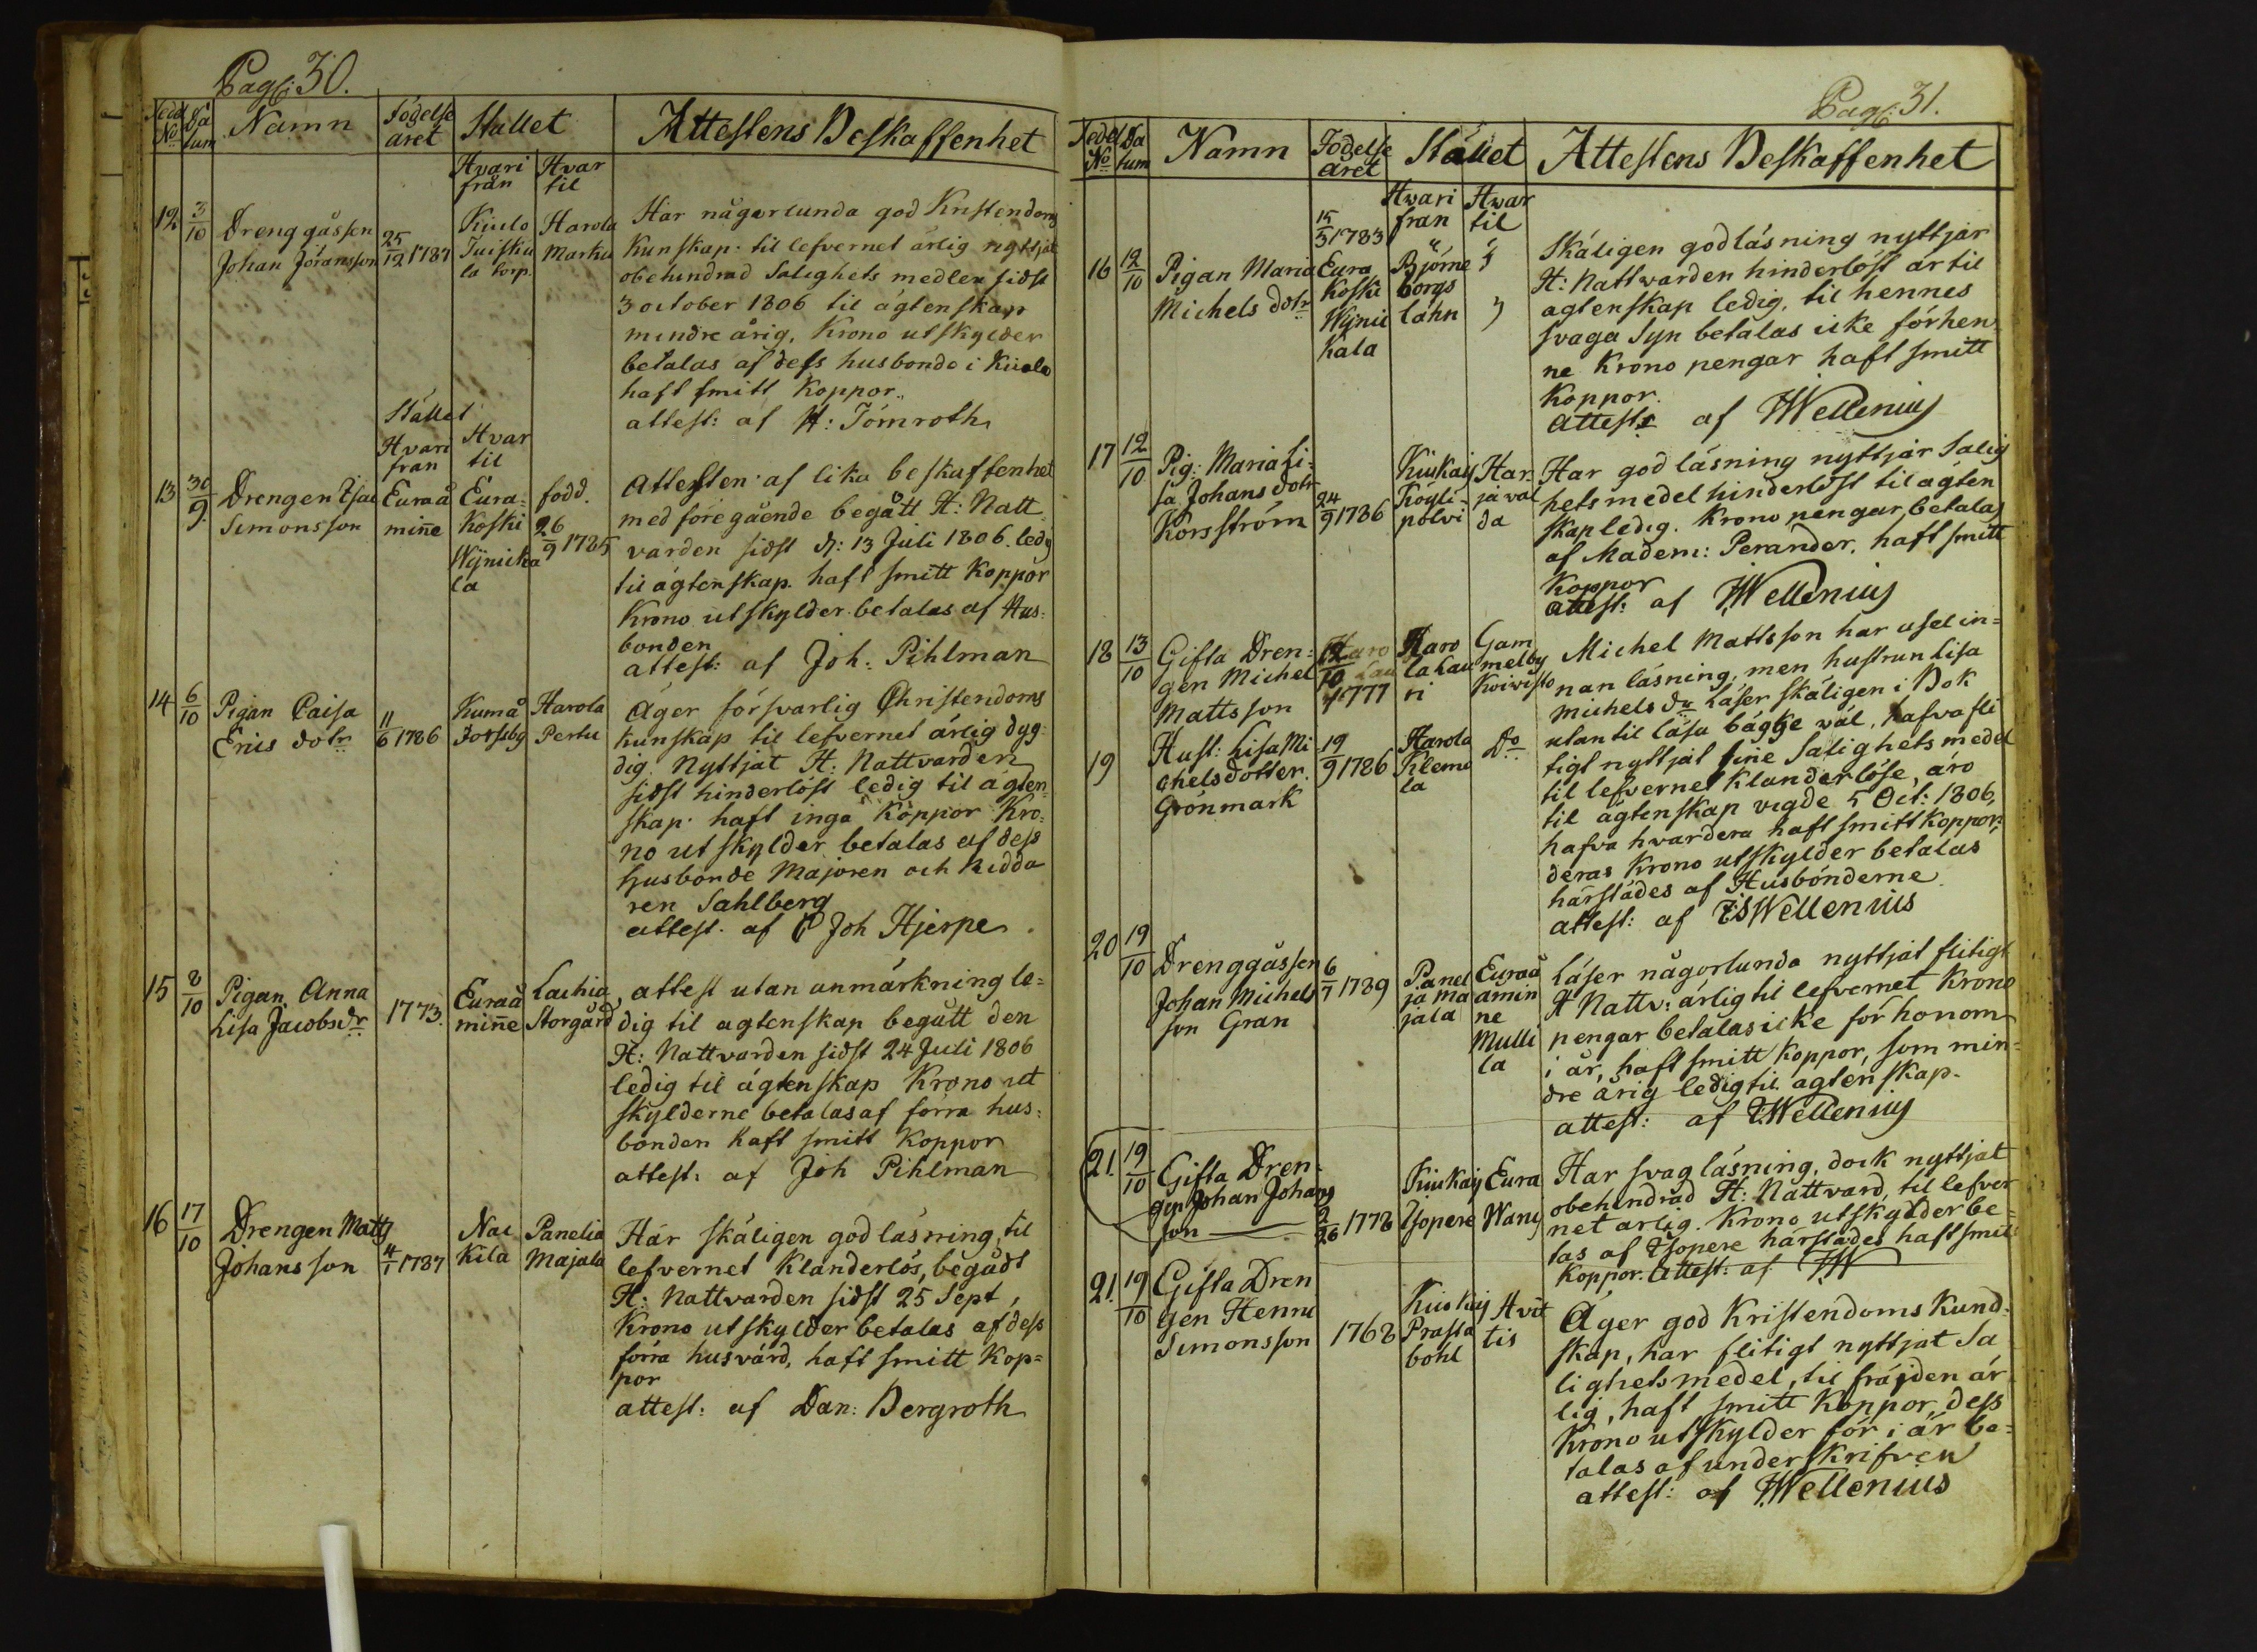 Pag: 30.
Sedel No Datum Namn Födelse året Stället Attestens Beskaffenhet
Hvari från Hvar til
12 3/10 Drenggåssen Johan Jöransson 25/12 1787 Kiulo Tuiskula torp. Harola Marku
Har någorlunda god Kristendoms
Kunskap til lefvernet ärlig nyttjat
obehindrad Salighets medlen sidst
3 october 1806 til ägtenskap
mindre årig, Krono utskylder
betalas af dess husbonde i Kiulo
haft smitt Koppor.
attest: af H: Törnroth
Stället
Hvari från Hvar til
13 30/9. Drengen Isac Simonsson Euraåminne Eura Koski Wijnickala född. 26/9 1785
Attesten af lika beskaffenhet
med föregående begått H: Natt
varden sidst d: 13 Juli 1806. ledig
til ägtenskap. haft smitt Koppor
Krono utskylder betalas af Hus:
bonden
attest: af Joh: Pihlman
14 6/10 Pigan Caisa Erics dotr 11/6 1786 Kumå Forsby Harola Pertu
Äger försvarlig Christendoms
kunskap til lefvernet ärlig dyg:
dig. Nyttjat H: Nattvarden
sidst hinderlöst ledig til ägten
skap. haft inga Koppor Kro:
no utskylder betalas af dess
husbonde Majoren och Ridda
ren Sahlberg
attest. af Joh Hjerpe
15 8/10 Pigan Anna Lisa Jacobsdr 1773. Euraåminne Storgård
attest utan anmärkning le=
dig til agtenskap begått den
H: Nattvarden sidst 24 Juli 1806
ledig til ägtenskap Krono ut
skylderne betalas af förra hus:
bonden haft smitt Koppor
attest: af Joh Pihlman
16 17/10 Drengen Matts Johansson 4/1 1787 Nackila Panelia Majala
Här skäligen god läsning, til
lefvernet Klanderlös, begådt
H: Nattvarden sidst 25 Sept,
Krono utskylder betalas af dess
förra husvärd, haft smitt Kop=
por
attest: af Dan: Bergroth
Pag: 31.
Sedel No Datum Namn Födelse året Stället Attestens Beskaffenhet
Hvari från Hvar til
16 12/10 Pigan Maria Michels dotr 15/3 1783 Eura Koski Wijnickala Björneborgs lähn
Skäligen god läsning nyttjar
H: Nattvarden hinderlöst är til
agtenskap ledig, til hennes
svaga Syn betalas icke för hen
ne Krono pengar haft smitt
Koppor.
attest: af Wellenius
17 12/10 Pig: Maria Lisa Johans dotr Korsström 24/9 1786 Kiukais Köylipolvi Harjavalda
Har god läsning nyttjar Salig
hets medel hinderlöst til ägten
skap ledig. Krono pengar betalas
af Madem: Perander. haft smitt
Koppor
attest: af Wellenius
18 13/10 Gifta Drengen Michel Mattsson 1777 Harola Lauri Gammelby Koivisto
Michel Mattsson har usel in=
nan läsning, men hustrun Lisa
Michels dr läser skäligen i Bok
utan til läsa bägge väl, hafva fli
tigt nyttjat sine Salighets medel
til lefvernet Klanderlöse, äro
til ägtenskap vigde 5 Oct: 1806,
hafva hvardera haft smitt koppor,
deras Krono utskylder betalas
härstädes af Husbönderne
attest: af Wellenius
19 Hust: Lisa Michelsdotter. Grönmark 19/9 1786 Harola Klemola Do
20 19/10 Drenggåssen Johan Michelsson Gran 6/7 1789 Panelia Majala Euraåminne Mullila
Läser någorlunda nyttjat flitigt
H Nattv: ärlig til lefvernet Krono
pengar betalas icke för honom
i år, haft smitt Koppor, som min=
dre årig ledig til agtenskap.
attest: af Wellenius
21. 19/10 Gifta Drengen Johan Johansson 2/26 1778 Kiukais Uopere Eura Wanis
Har svag läsning, dock nyttjat
obehindrad H: Nattvard, til lefver
net ärlig. Krono utskylder be=
tas af Uopere härstädes haft smitt
Koppor. attest: af JW
21. 19/10 Gifta Drengen Hennu Simonsson 1768 Kiukais Prästabohl Hvittis
Äger god Kristendoms Kund=
skap, har flitigt nyttjat Sa
lighets medel, til fräjden är
lig, haft smitt Koppor, dess
Krono utskylder för i år be=
talas af underskrifven
attest: af Wellenius